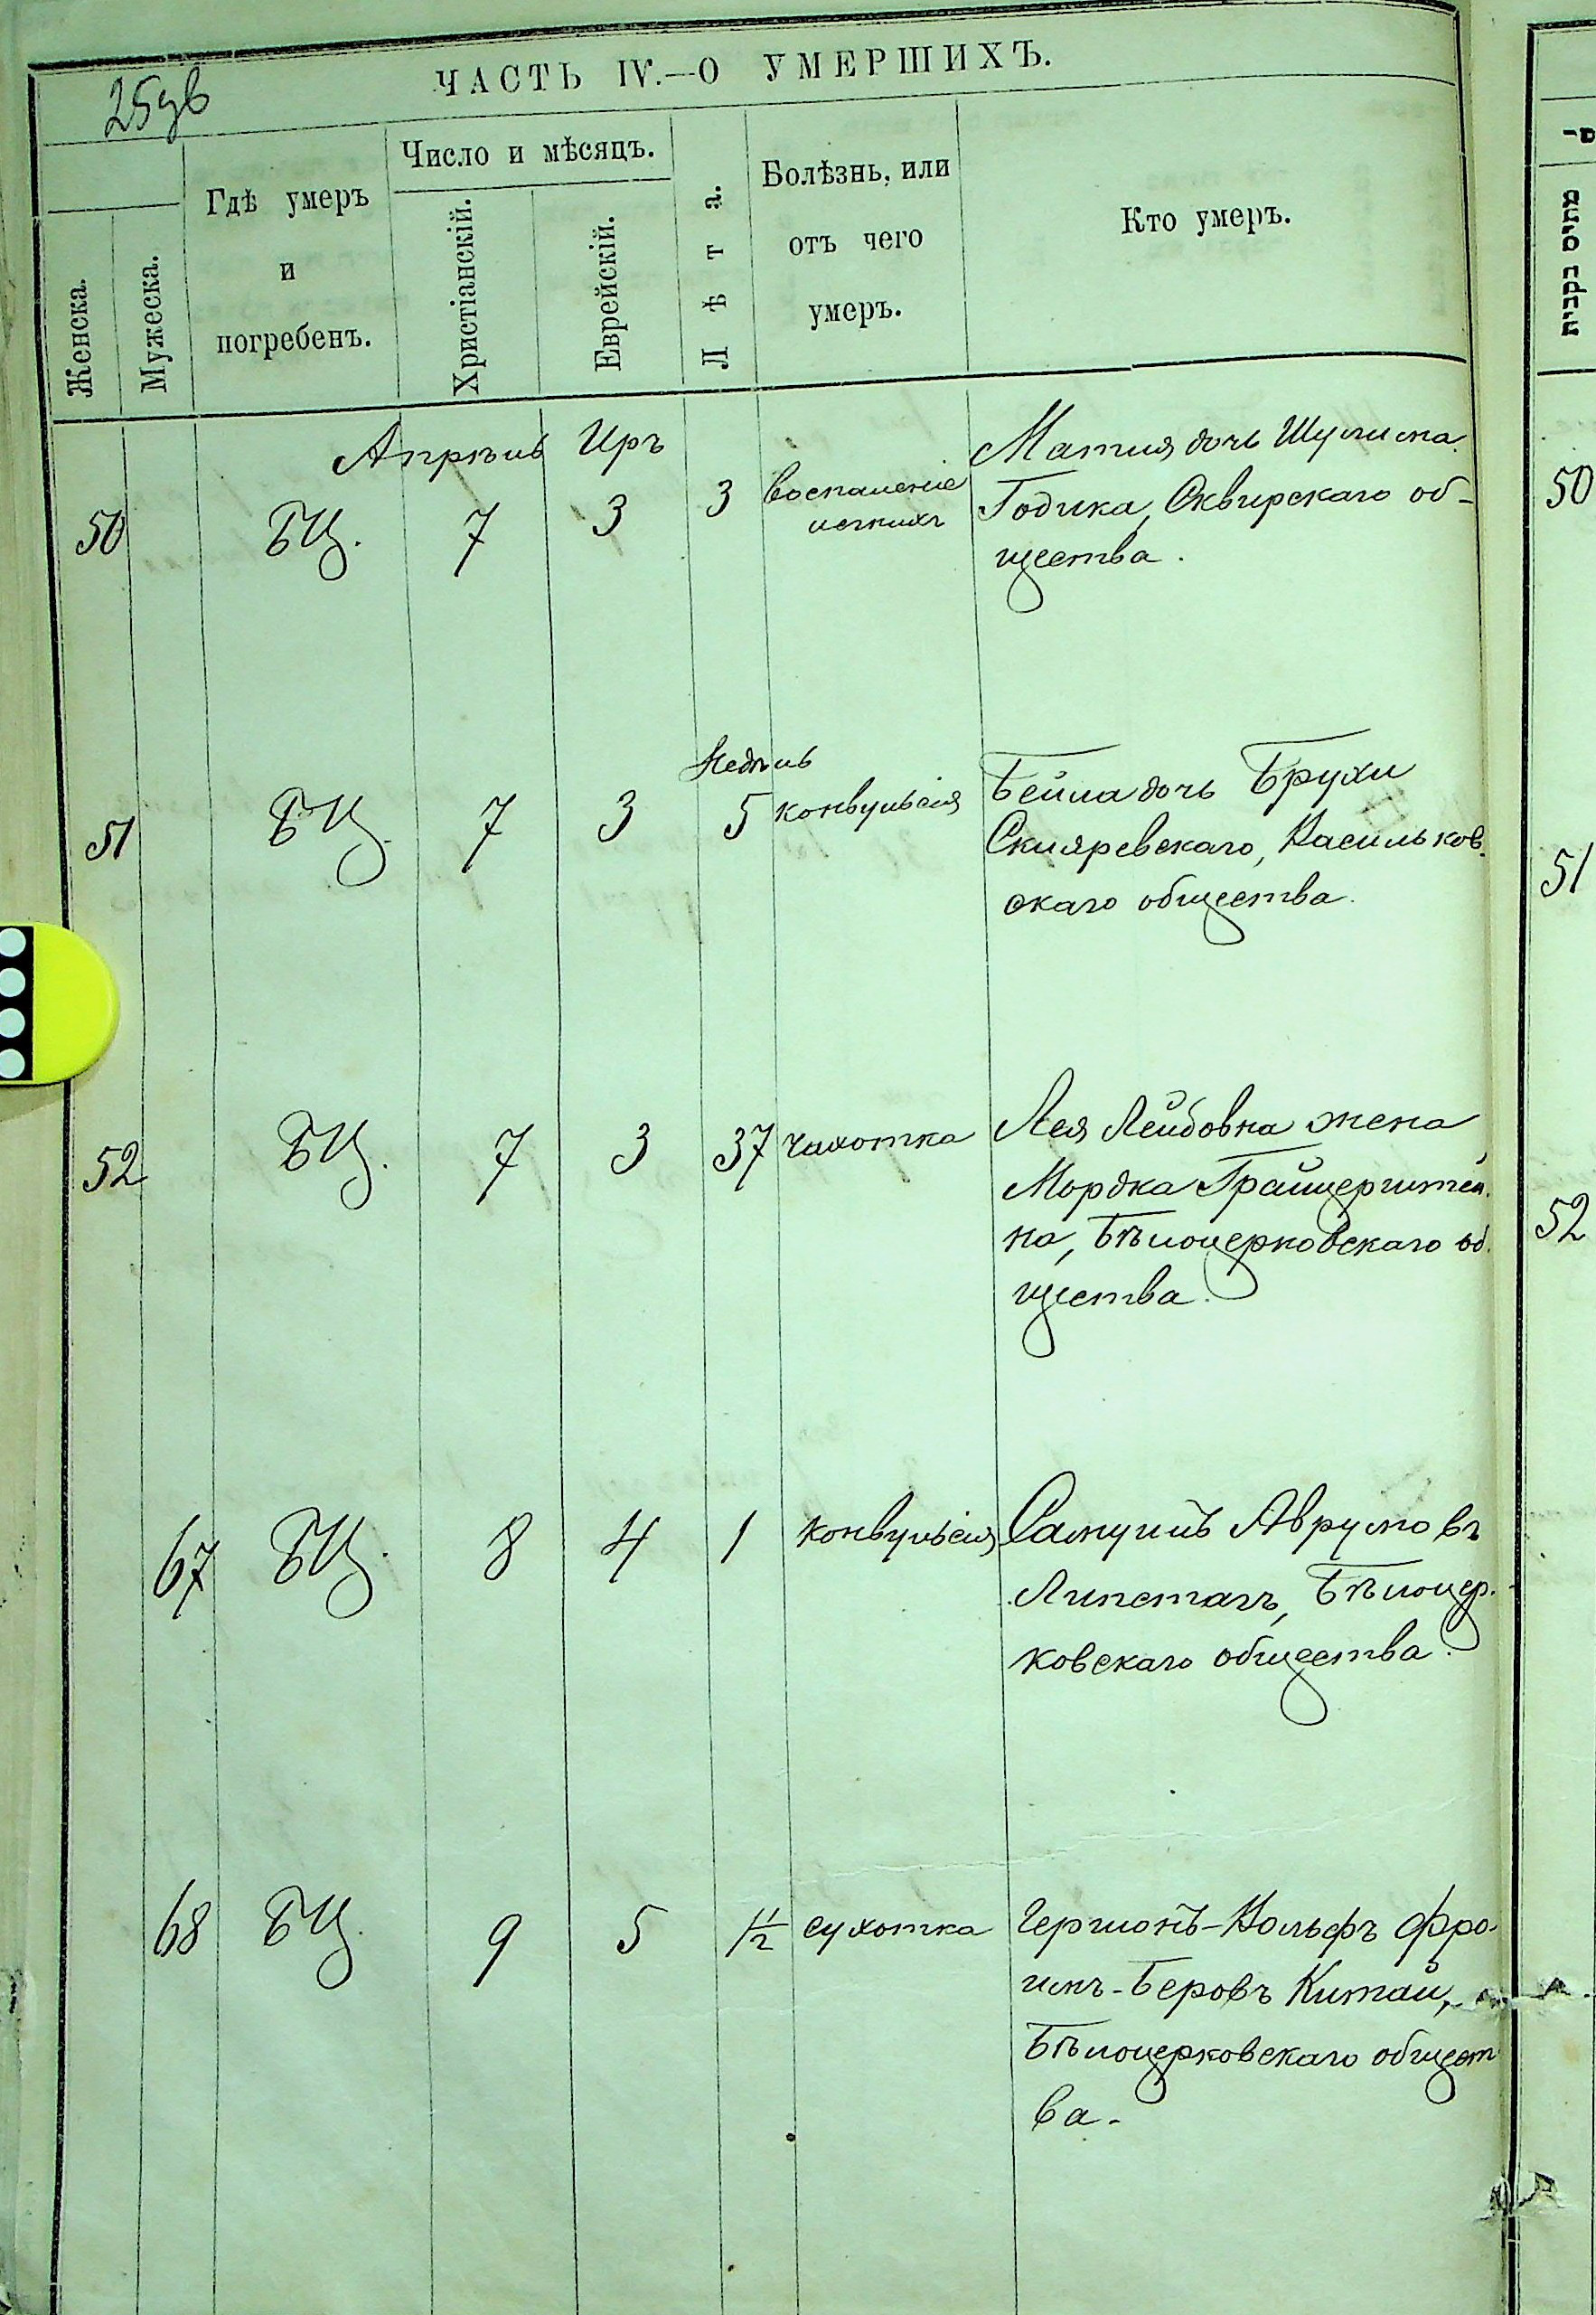 ЧАСТЬ IV.—О УМЕРШИХЪ.
Женска.
Мужеска.
Гдѣ умеръ
и
погребенъ.
Число и мѣсяцъ.
Христіанскій.
Еврейскій.
Лѣта.
Болѣзнь, или
отъ чего
умеръ.
Кто умеръ.
Апрѣль Иръ
50 БЦ. 7 3 3 воспаленіе легкихъ
Матля дочь Шулима
Годика, Сквирскаго об-
щества.
Недѣль
51 БЦ. 7 3 5 конвульсія
Бейла дочь Брухи
Скляревскаго, Васильков.
скаго общества.
52 БЦ. 7 3 37 чахотка
Лея Лейбовна жена
Мордка Грайцерштей.
на, Бѣлоцерковскаго об.
щества.
67 БЦ. 8 4 1 конвульсія
Самуилъ Аврумовъ
Бѣлоцер.
ковскаго общества.
68 БЦ. 9 5 1½ сухотка
Вольфъ Фро.
имъ-Беровъ Китай,
Бѣлоцерковскаго общест
ва.
50
51
52